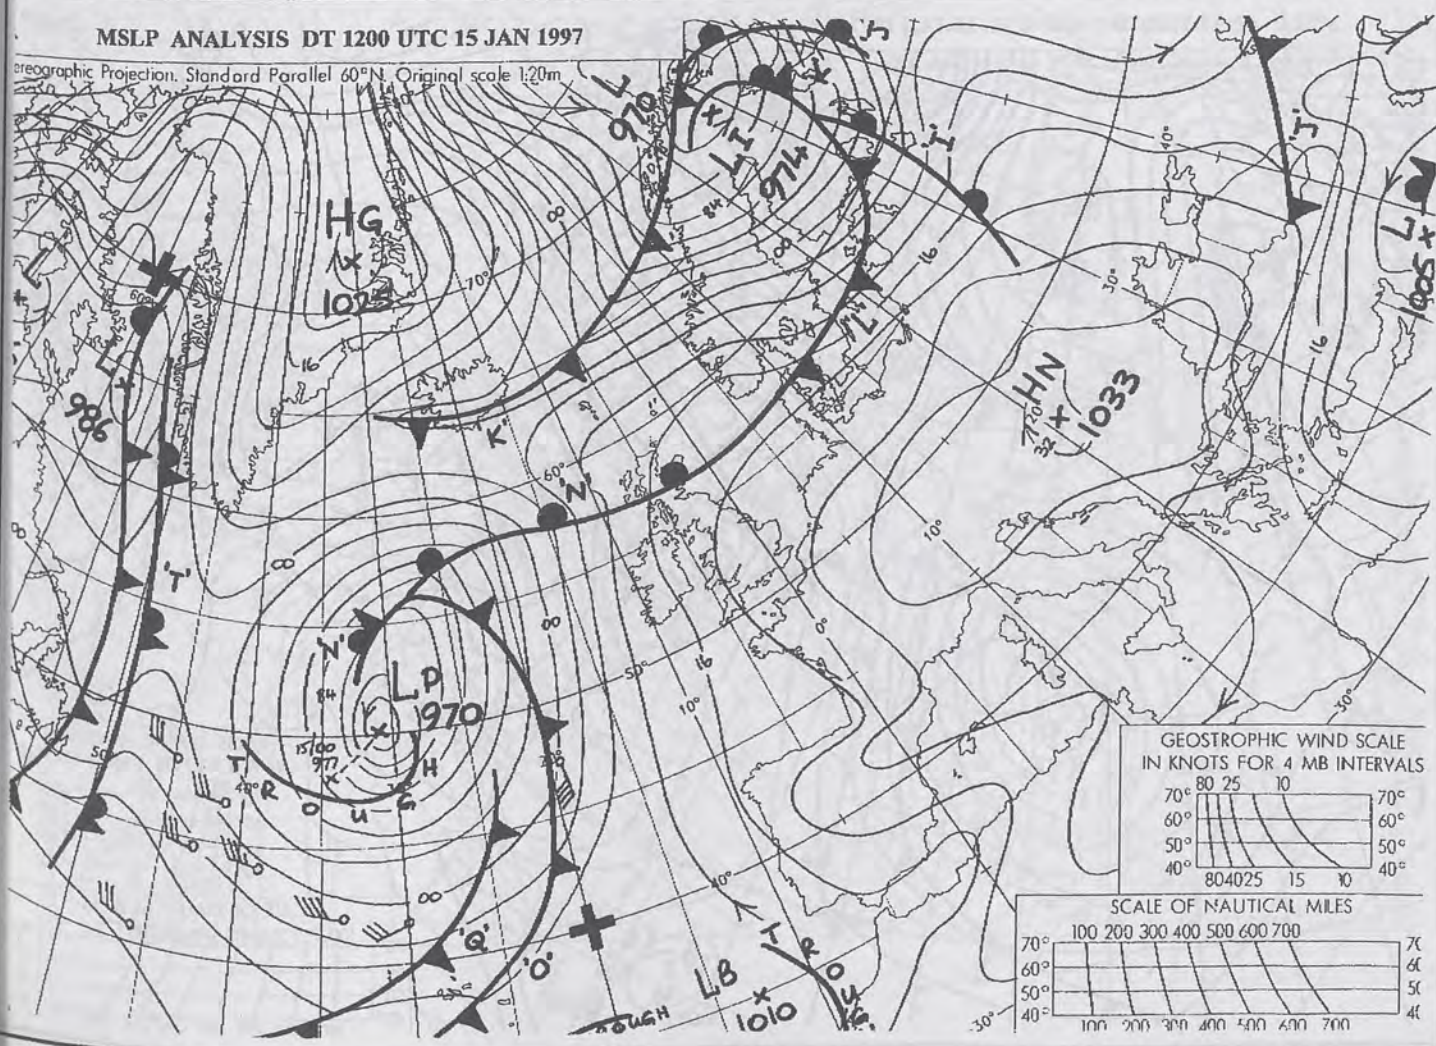 MSLP ANALYSIS DT 1200 UTC 15 JAN 1997
ereographic Projection. Standard Parallel 60°N. Original scale 1:20m
L
970
'J'
K
LI
974
'I'
'J'
84
40°
L
1005
16
30°
HG
1025
70°
16
60°
L
986
'K'
60°
'N'
'L'
HN
1033
32
16
10°
0°
'T'
'N'
LP
970
84
15/00
977
50°
16
10°
T R O U G H
50°
40°
'Q'
'O'
40°
LB
1010
T R O U G
OUGH
30°
30°
GEOSTROPHIC WIND SCALE
IN KNOTS FOR 4 MB INTERVALS
80 25 10
70° 70°
60° 60°
50° 50°
40° 40°
80 40 25 15 10
SCALE OF NAUTICAL MILES
100 200 300 400 500 600 700
70°
60°
50°
40°
100 200 300 400 500 600 700